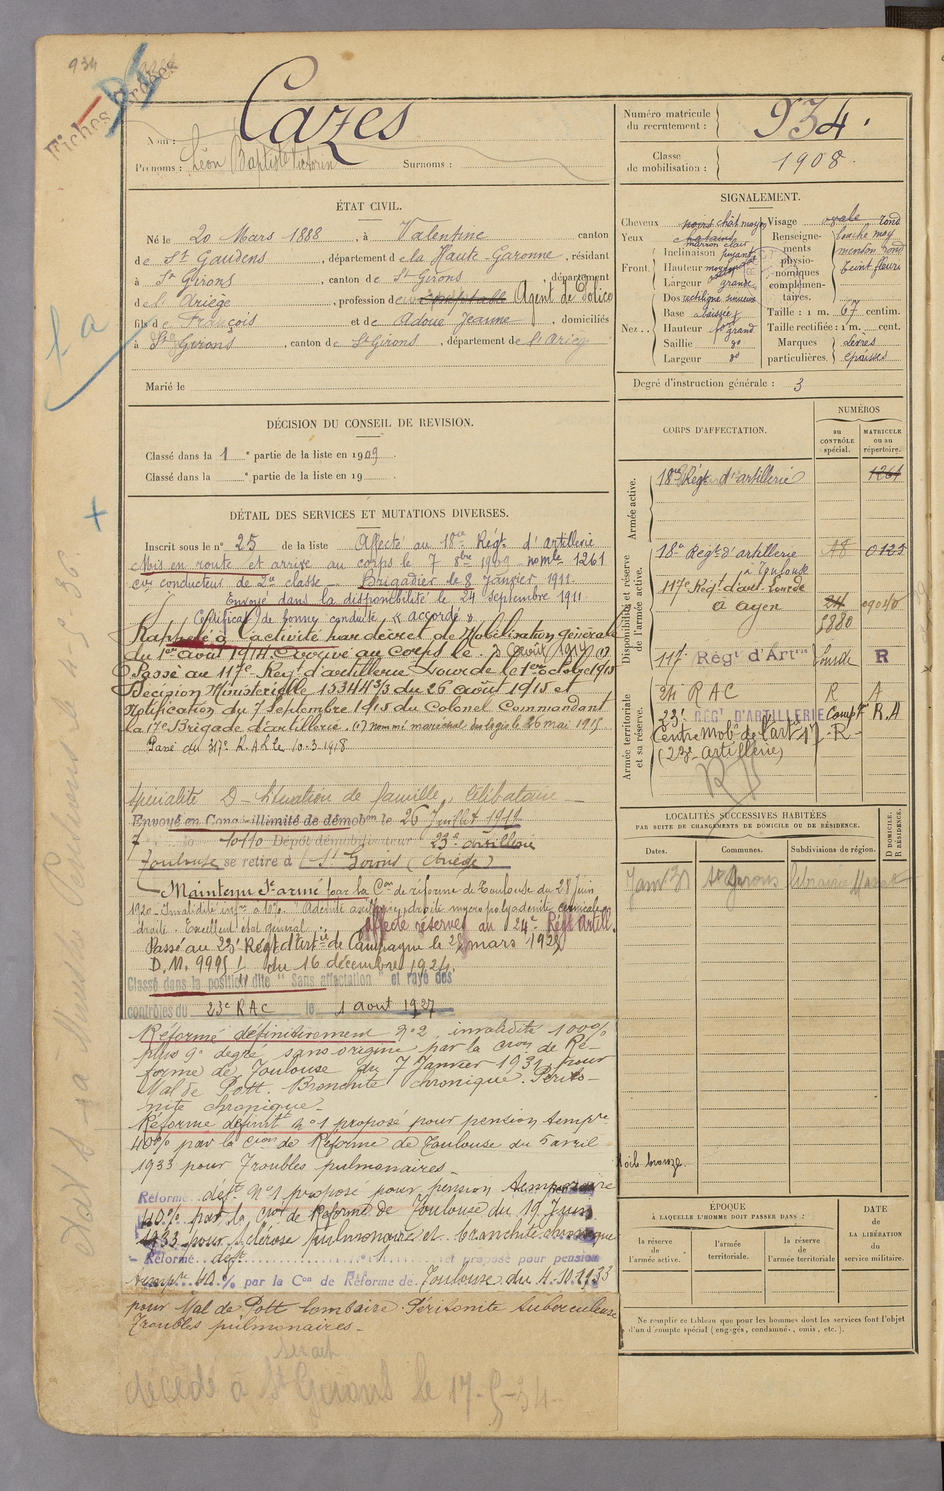 934
Fiches
Nom : Cazes
Prénoms : Léon Baptiste Victorin Surnoms :
Numéro matricule du recrutement : 934.
Classe de mobilisation : 1908
ÉTAT CIVIL.
Né le 20 Mars 1888, à Valentine canton
de St Gaudens, département de la Haute-Garonne, résidant
à St Girons, canton de St Girons, département
de l'Ariège, profession de Comptable Agent de Police
fils de François et de Adoue Jeanne, domiciliés
à St Girons, canton de St Girons, département de l'Ariège
Marié le
SIGNALEMENT.
Cheveux noirs chât moyen
Yeux chatains marron clair
Front Inclinaison fuyante
Hauteur moyenne
Largeur grande
Nez Dos rectiligne
Base abaissée
Hauteur grand
Saillie
Largeur
Visage ovale rond
Renseignements physionomiques complémentaires. bouche moy menton rond teint fleuri
Taille : 1 m. 67 centim.
Taille rectifiée : 1 m. cent.
Marques particulières. lèvres épaisses
Degré d'instruction générale : 3
DÉCISION DU CONSEIL DE REVISION.
Classé dans la 1 e partie de la liste en 1909.
Classé dans la e partie de la liste en 19 .
DÉTAIL DES SERVICES ET MUTATIONS DIVERSES.
Inscrit sous le n° 25 de la liste Affecté au 18me Régt d'artillerie
Mis en route et arrivé au corps le 7 8bre 1909 nomle 1261
conducteur de 2e classe - Brigadier le 8 Janvier 1911
Envoyé dans la disponibilité le 24 septembre 1911
Certificat de bonne conduite « accordé »
Rappelé à l'activité par décret de Mobilisation générale
du 1er août 1914 arrivé au corps le 3 août 1914 (1)
Passé au 117e Régt d'artillerie Lourde le 1er octobre 1915
Décision Ministérielle 15344 3/3 du 26 août 1915 et
Notification du 7 septembre 1915 du Colonel Commandant
la 17e Brigade d'artillerie. (1) nommé maréchal des logis le 26 mai 1915
Passé du 317e R.A.L le 10-3-1918
Spécialité D - Situation de famille, Célibataire -
Envoyé en Congé illimité de démobon le 26 Juillet 1919
Dépôt démobilisateur 23e artillerie
Toulouse se retire à St Girons (Ariège)
Maintenu St armé par la Con de réforme de Toulouse du 28 Juin
1920 - Invalidité infre à 10%. Adénite axillaire droite micro polyadénite cervicale
droite. Excellent état général
affecté réserves au 24e Régt Artill.
Passé au 23e Régt d'artie de Campagne le 28 mars 1925
D.M. 9995 du 16 décembre 1924.
Classé dans la position dite "Sans affectation" et rayé des
contrôles du 23e RAC le 1 aout 1927
Réformé définitivement n° 2, invalidité 100%
plus 9° degré, sans origine par la Cion de Ré-
forme de Toulouse du 7 Janvier 1931 pour
Mal de Pott. Bronchite chronique. Périto-
nite chronique -
Réformé définit n° 1 proposé pour pension tempre
40% par la Cion de Réforme de Toulouse du 5 avril
1933 pour Troubles pulmonaires -
Réformé deft n° 1 proposé pour pension temporaire
40% par la Cion de Réforme de Toulouse du 19 Juin
1933 pour Sclérose pulmonaire et bronchite chronique
- Réformé deft n° 1 et proposé pour pension
temple 40 % par la Con de Réforme de Toulouse du 4-10-1933
pour Mal de Pott lombaire. Péritonite tuberculeuse
Troubles pulmonaires -
décédé à St Girons le 17-5-34
CORPS D'AFFECTATION.
NUMÉROS
au CONTRÔLE spécial.
MATRICULE ou au répertoire.
Armée active.
18me Régt d'artillerie 1261
Disponibilité et réserve de l'armée active.
18e Régt d'artillerie 0123
à Toulouse
117e Régt d'art. Lourde
à Agen
117e Régt d'Artrie Lourde R
Armée territoriale et sa réserve.
24 RAC R A
23e RÉGT D'ARTILLERIE Camp R.A
Centre Mobe de l'art 17 - R -
(23e artillerie)
LOCALITÉS SUCCESSIVES HABITÉES
PAR SUITE DE CHANGEMENTS DE DOMICILE OU DE RÉSIDENCE.
D DOMICILE. R RÉSIDENCE.
Dates. Communes. Subdivisions de région.
Janv 31 St Girons
ÉPOQUE
À LAQUELLE L'HOMME DOIT PASSER DANS :
la réserve de l'armée active.
l'armée territoriale.
la réserve de l'armée territoriale
DATE de LA LIBÉRATION du service militaire.
Ne remplir ce tableau que pour les hommes dont les services font l'objet
d'un décompte spécial (engagés, condamnés, omis, etc.).